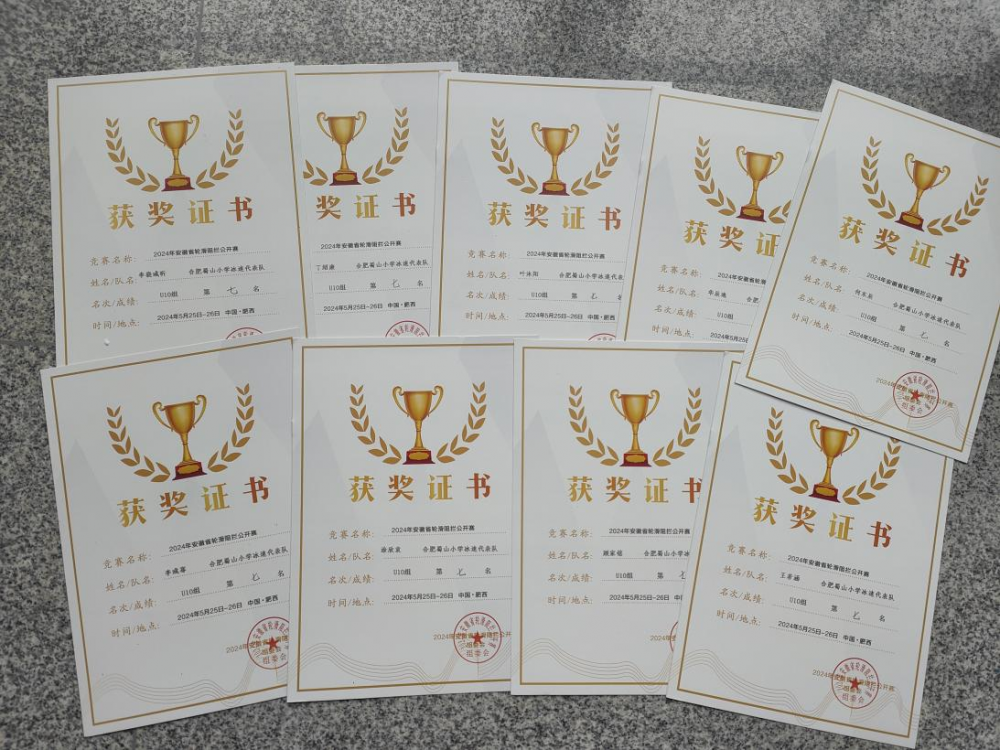 获奖证书
竞赛名称: 2024年安徽省轮滑阻拦公开赛
姓名/队名: 合肥蜀山小学冰速代表队
名次/成绩: U10组 第 七 名
时间/地点: 2024年5月25日-26日 中国·肥西
奖证书
2024年安徽省轮滑阻拦公开赛
合肥蜀山小学冰速代表队
U10组 第 七 名
2024年5月25日-26日 中国·肥西
获奖证书
竞赛名称: 2024年安徽省轮滑阻拦公开赛
姓名/队名: 叶沐阳 合肥蜀山小学冰速代表队
名次/成绩: U10组 第 七 名
时间/地点: 2024年5月25日-26日 中国·肥西
获奖证
竞赛名称: 2024年安徽省轮滑
姓名/队名: 合肥
名次/成绩: U10组
时间/地点: 2024年5月25日-
获奖证书
竞赛名称: 2024年安徽省轮滑阻拦公开赛
姓名/队名: 合肥蜀山小学冰速代表队
名次/成绩: U10组 第 七 名
时间/地点: 2024年5月25日-26日 中国·肥西
2024年安徽省轮滑阻拦公开赛
组委会
获奖证书
竞赛名称: 2024年安徽省轮滑阻拦公开赛
姓名/队名: 合肥蜀山小学冰速代表队
名次/成绩: U10组 第 七 名
时间/地点: 2024年5月25日-26日 中国·肥西
2024年安徽省轮滑阻拦
组委会
获奖证书
竞赛名称: 2024年安徽省轮滑阻拦公开赛
姓名/队名: 合肥蜀山小学冰速代表队
名次/成绩: U10组 第 七 名
时间/地点: 2024年5月25日-26日 中国·肥西
2024年安徽省轮滑阻拦公开
组委会
获奖证书
竞赛名称: 2024年安徽省轮滑阻拦公开赛
姓名/队名: 合肥蜀山小学冰速代表
名次/成绩: U10组 第 七
时间/地点: 2024年5月25日-26日 中国·肥西
2024年
获奖证书
竞赛名称: 2024年安徽省轮滑阻拦公开赛
姓名/队名: 合肥蜀山小学冰速代表队
名次/成绩: U10组 第 七 名
时间/地点: 2024年5月25日-26日 中国·肥西
2024年安徽省轮滑阻拦公开赛
组委会